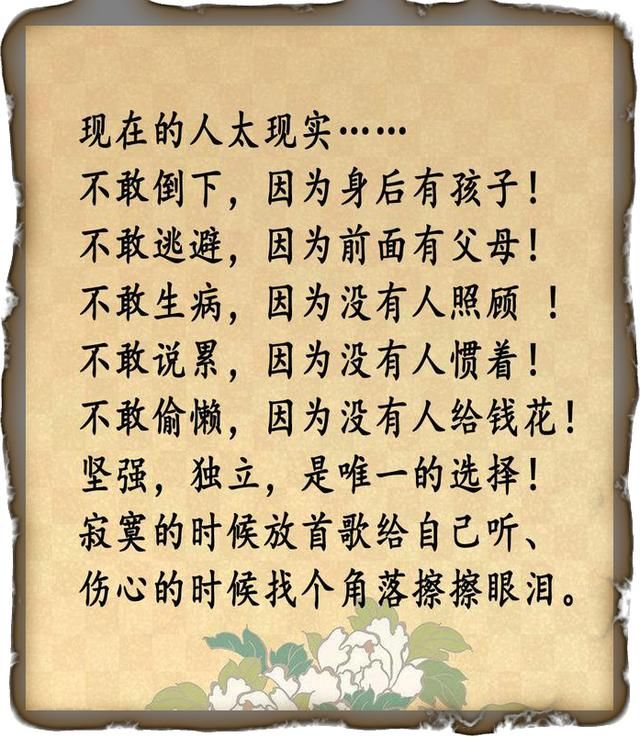 现在的人太现实……
不敢倒下，因为身后有孩子！
不敢逃避，因为前面有父母！
不敢生病，因为没有人照顾 ！
不敢说累，因为没有人惯着！
不敢偷懒，因为没有人给钱花！
坚强，独立，是唯一的选择！
寂寞的时候放首歌给自己听、
伤心的时候找个角落擦擦眼泪。